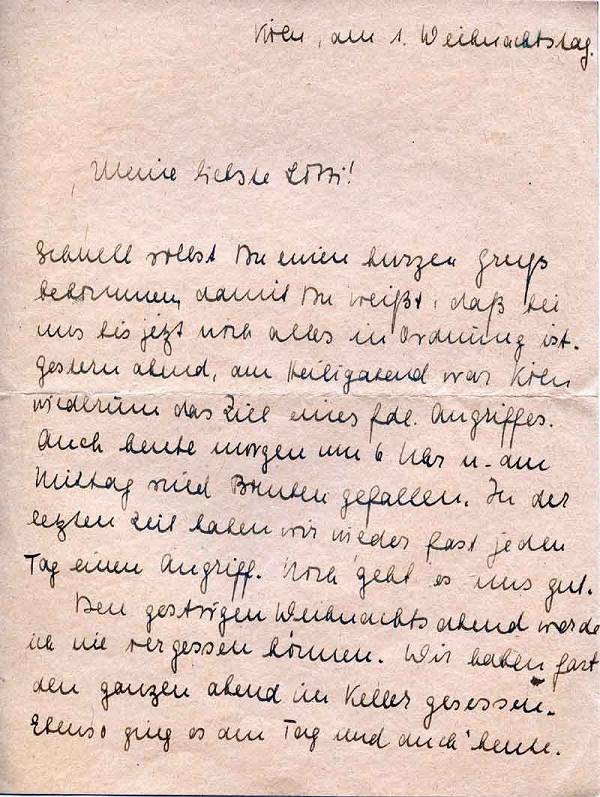 Köln, am 1. Weihnachtstag.
Meine liebste Lotti!
Schnell sollst Du einen kurzen Gruß
bekommen, damit Du weißt, daß bei
uns bis jetzt noch alles in Ordnung ist.
Gestern abend, am Heiligabend war Köln
wiederum das Ziel eines fdl. Angriffes.
Auch heute morgen um 6 Uhr u. am
Mittag sind Bomben gefallen. In der
letzten Zeit haben wir wieder fast jeden
Tag einen Angriff. Noch geht es uns gut.
Den gestrigen Weihnachtsabend werde
ich nie vergessen können. Wir haben fast
den ganzen abend im Keller gesessen.
Ebenso ging es am Tag und auch heute.